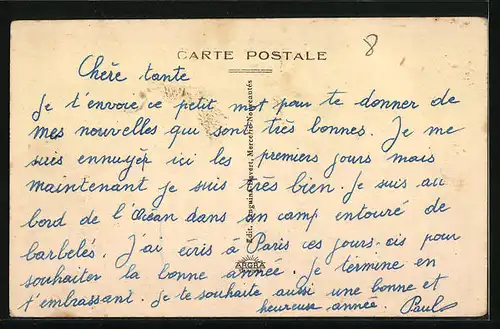 CARTE POSTALE
8
Chère tante
Je t'envoie ce petit mot pour te donner de
mes nouvelles qui sont très bonnes. Je me
suis ennuyée ici les premiers jours mais
maintenant je suis très bien. Je suis au
bord de l'Océan dans un camp entouré de
barbelés. J'ai écris à Paris ces jours-cis pour
souhaiter la bonne année. Je termine en
t'embrassant. Je te souhaite aussi une bonne et
heureuse année. Paul
Mercerie-Nouveautés